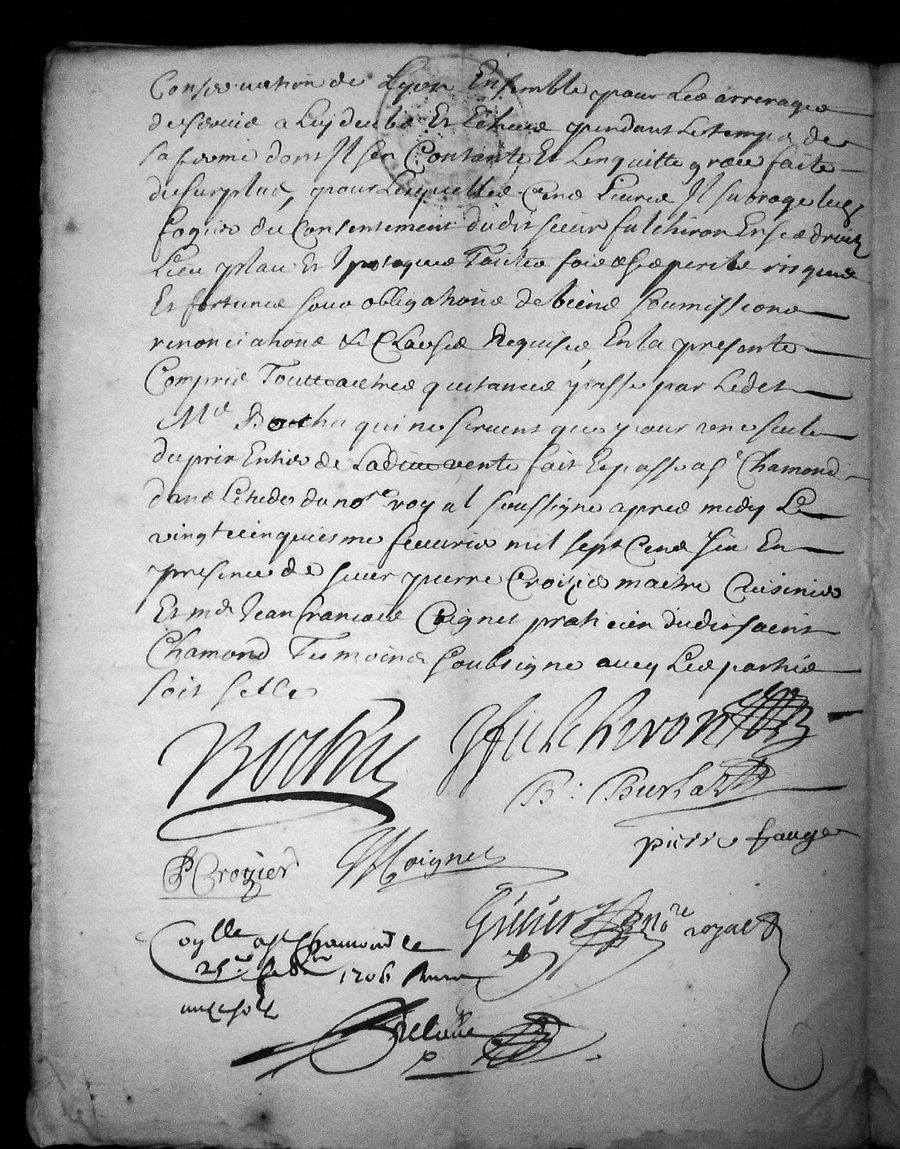 Conservation de Lyon Ensemble pour Les arrerages
de servis a Luy deubs Et Echeus pendant Le temps de
sa ferme dont Il Se Contante Et Len quitte grace faite
du surplus, pour Lesquelles Cens Livres Il subroge led
fogier du Consentement dudit sieur fulchiron En ses droits
Lieu place Et Ipoteque Toutes fois a Ses perils risques
Et fortunes sous obligations de biens soumissions
renonciations & Clauses Requises En la presente
Compris Touttes autres quitances passé par Ledit
Mre Bothu qui ne servent que pour une seule
du prix Entier de Ladite vente fait Et passe a St Chamond
dans L'etude du nore royal soussigne apres midy Le
vingt cinquiesme fevrier mil sept Cens Six En
presence de sieur pierre Croizier maitre Cuisinier
Et me Jean francois Coignet praticien dudit saint
Chamond Tesmoins soubsigne avecq Les parties
soit
Bothu Fulchiron
B: Burlat
pierre fauge
P Crozier Coignet
nore royal
a St Chamond le
25e 1706